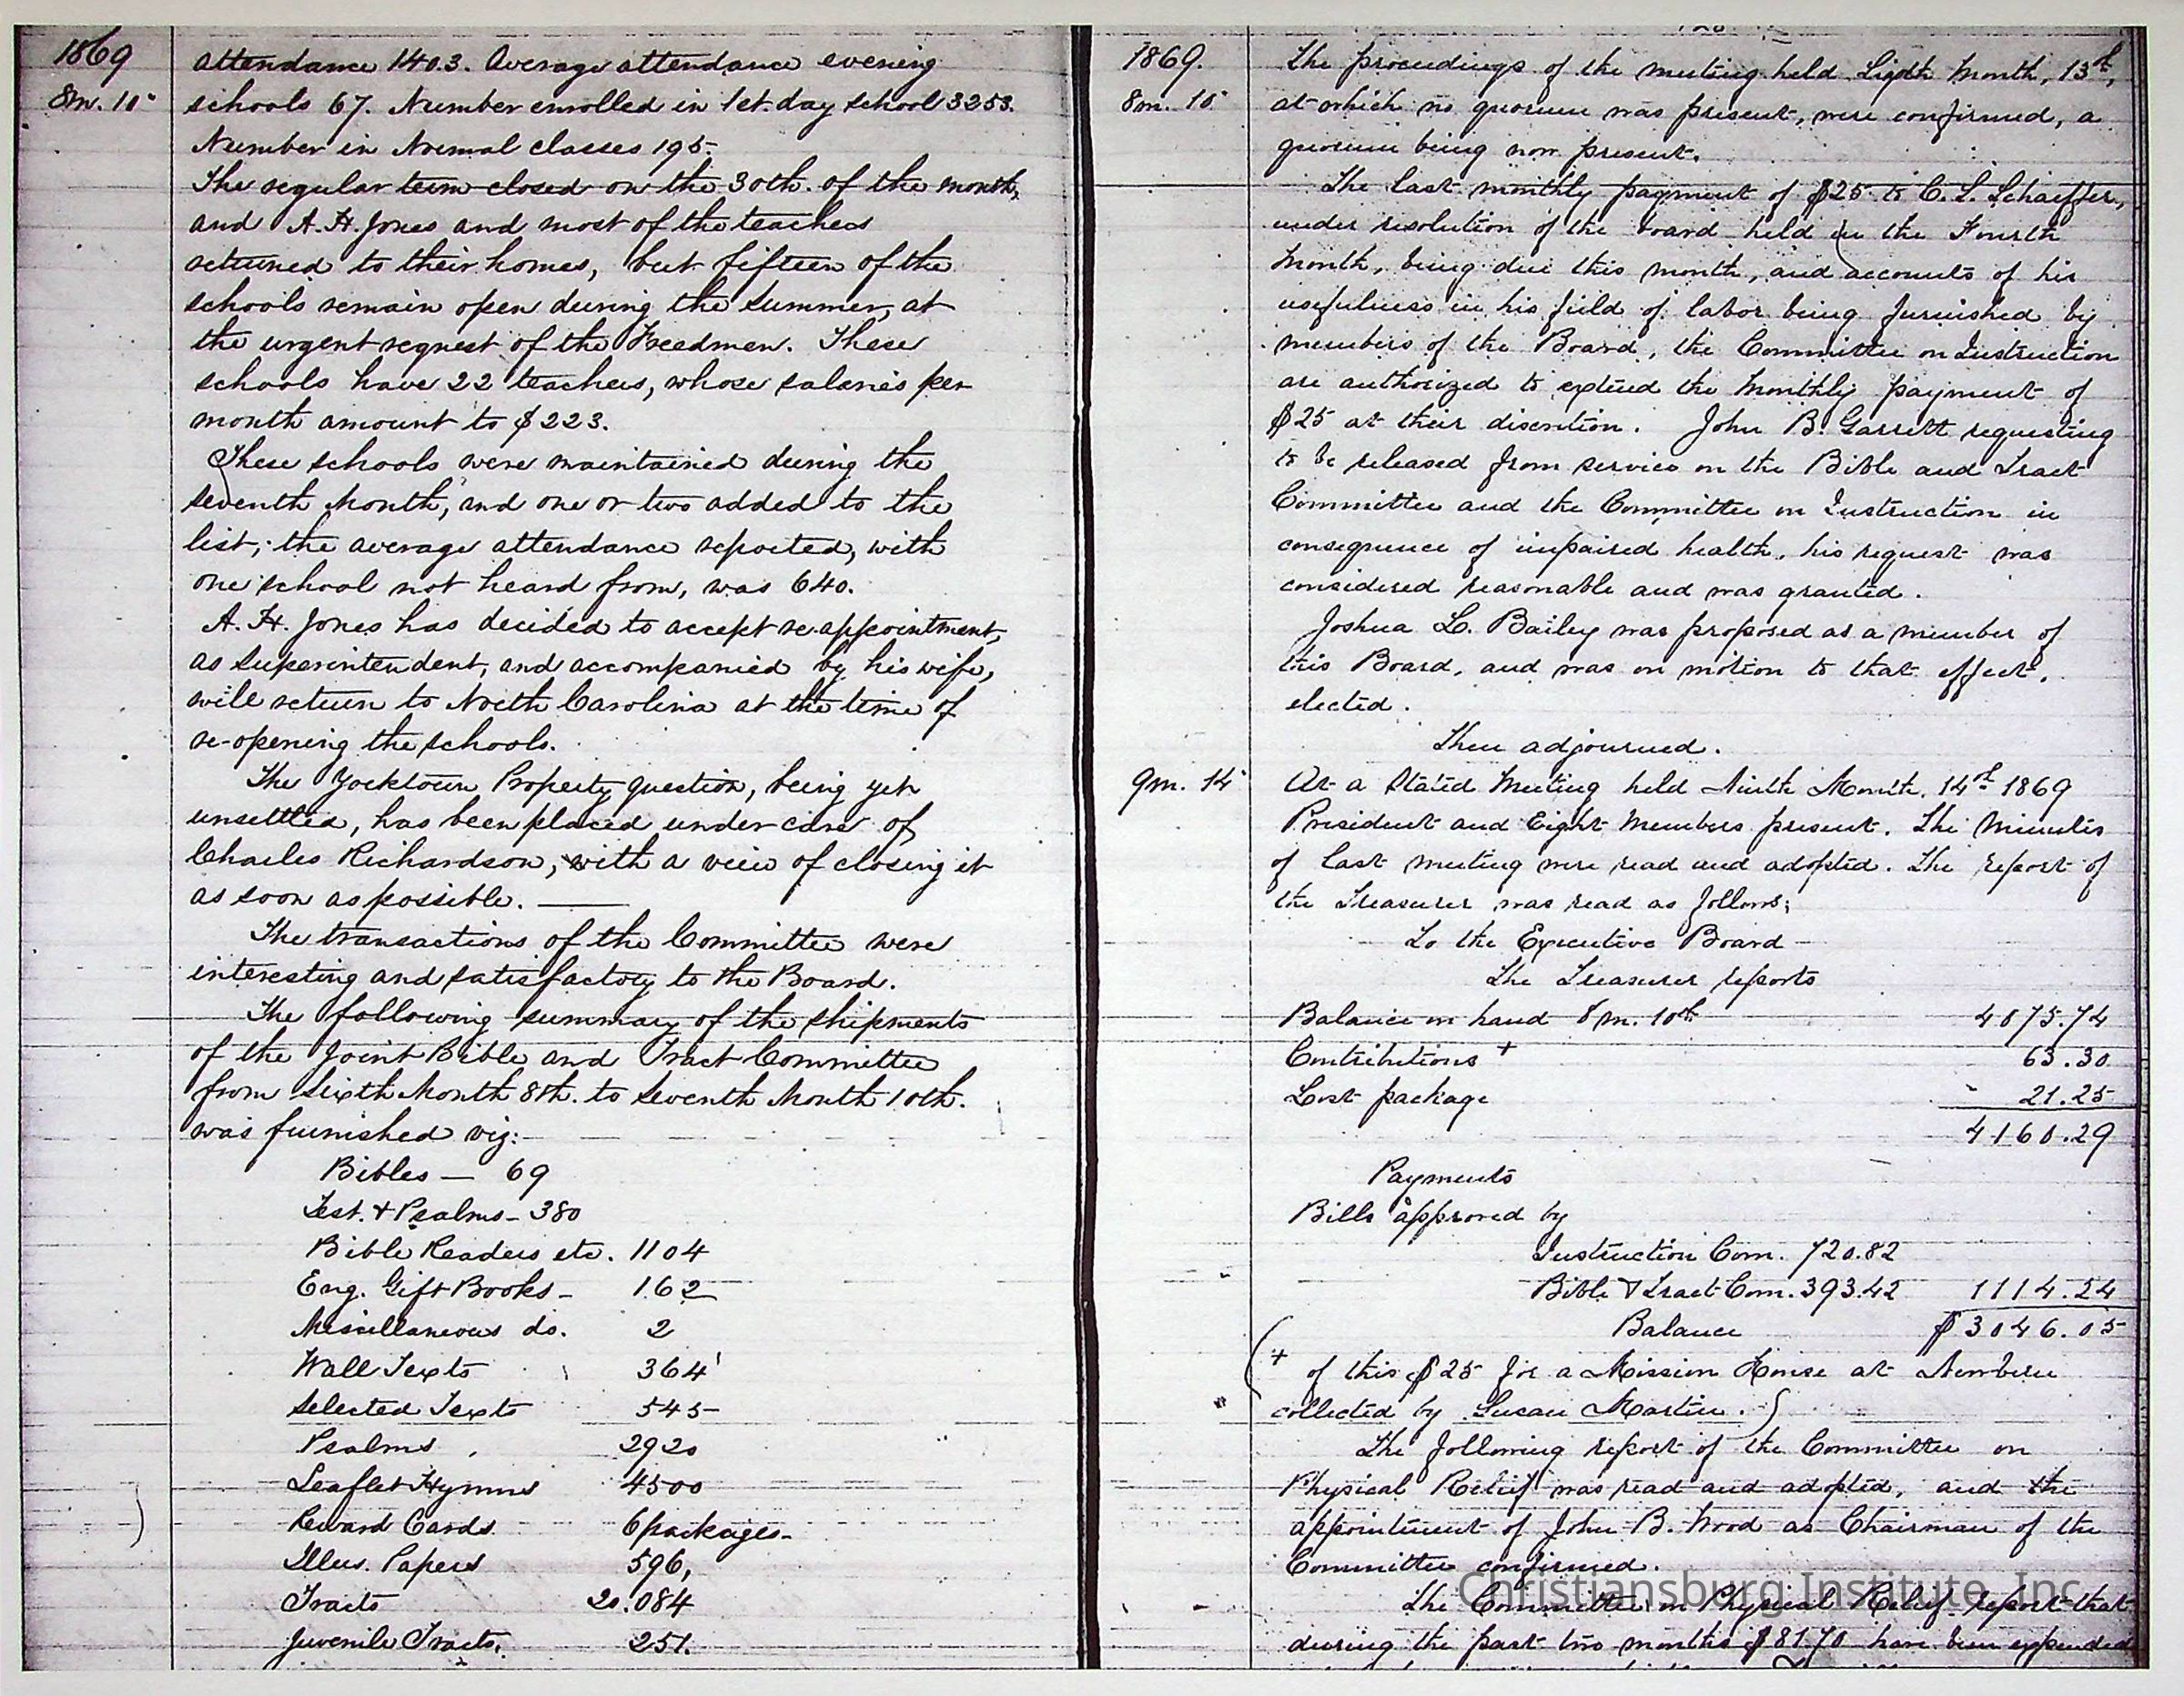 1869
8m. 10
attendance 1403. Average attendance evening
schools 67. Number enrolled in 1st. day school 3253.
Number in Normal classes 195.
The regular term closed on the 30th. of the month,
and A. H. Jones and most of the teachers
returned to their homes, but fifteen of the
schools remain open during the summer, at
the urgent request of the Freedmen. These
schools have 22 teachers, whose salaries per
month amount to $223.
These schools were maintained during the
seventh Month, and one or two added to the
list; the average attendance reported, with
one school not heard from, was 640.
A. H. Jones has decided to accept re-appointment,
as Superintendent, and accompanied by his wife,
will return to North Carolina at the time of
re-opening the schools.
The Yorktown Property question, being yet
unsettled, has been placed under care of
Charles Richardson, with a view of closing it
as soon as possible. —
The transactions of the Committee were
interesting and satisfactory to the Board.
The following summary of the shipments
of the Joint Bible and Tract Committee
from Sixth Month 8th. to Seventh Month 10th.
was furnished viz:
Bibles — 69
Test. & Psalms - 380
Bible Readers etc. 1104
Eng. Gift Books - 162
Miscellaneous do. 2
Wall Texts 364
Selected Texts 545
Psalms 2920
Leaflet Hymns 4500
Reward Cards 6 packages -
Illus. Papers 596,
Tracts 20.084
Juvenile Tracts. 251.
1869.
8m. 10
The proceedings of the meeting held Sixth Month, 15th,
at which no quorum was present, were confirmed, a
quorum being now present.
The last monthly payment of $25 to C. S. Schaeffer,
under resolution of the board held in the Fourth
Month, being due this month, and accounts of his
usefulness in his field of labor being furnished by
members of the Board, the Committee on Instruction
are authorized to extend the monthly payment of
$25 at their discretion. John B. Garrett requesting
to be released from service on the Bible and Tract
Committee and the Committee on Instruction in
consequence of impaired health, his request was
considered reasonable and was granted.
Joshua L. Bailey was proposed as a member of
this Board, and was on motion to that effect,
elected.
Then adjourned.
9m. 14
At a Stated Meeting held Ninth Month, 14th 1869
President and Eight Members present. The Minutes
of last meeting were read and adopted. The report of
the Treasurer was read as follows;
To the Executive Board —
The Treasurer reports
Balance on hand 8m. 10th 4075.74
Contributions + 63.30
Lost package 21.25
4160.29
Payments
Bills approved by
Instruction Com. 720.82
Bible & Tract Com. 393.42 1114.24
Balance $3046.05
(+ of this $25 for a Mission House at Newbern
collected by Susan Martin.)
The following report of the Committee on
Physical Relief was read and adopted, and the
appointment of John B. Wood as Chairman of the
Committee confirmed.
The Committee on Physical Relief report that
during the past two months $81.70 have been expended
Christiansburg Institute, Inc.